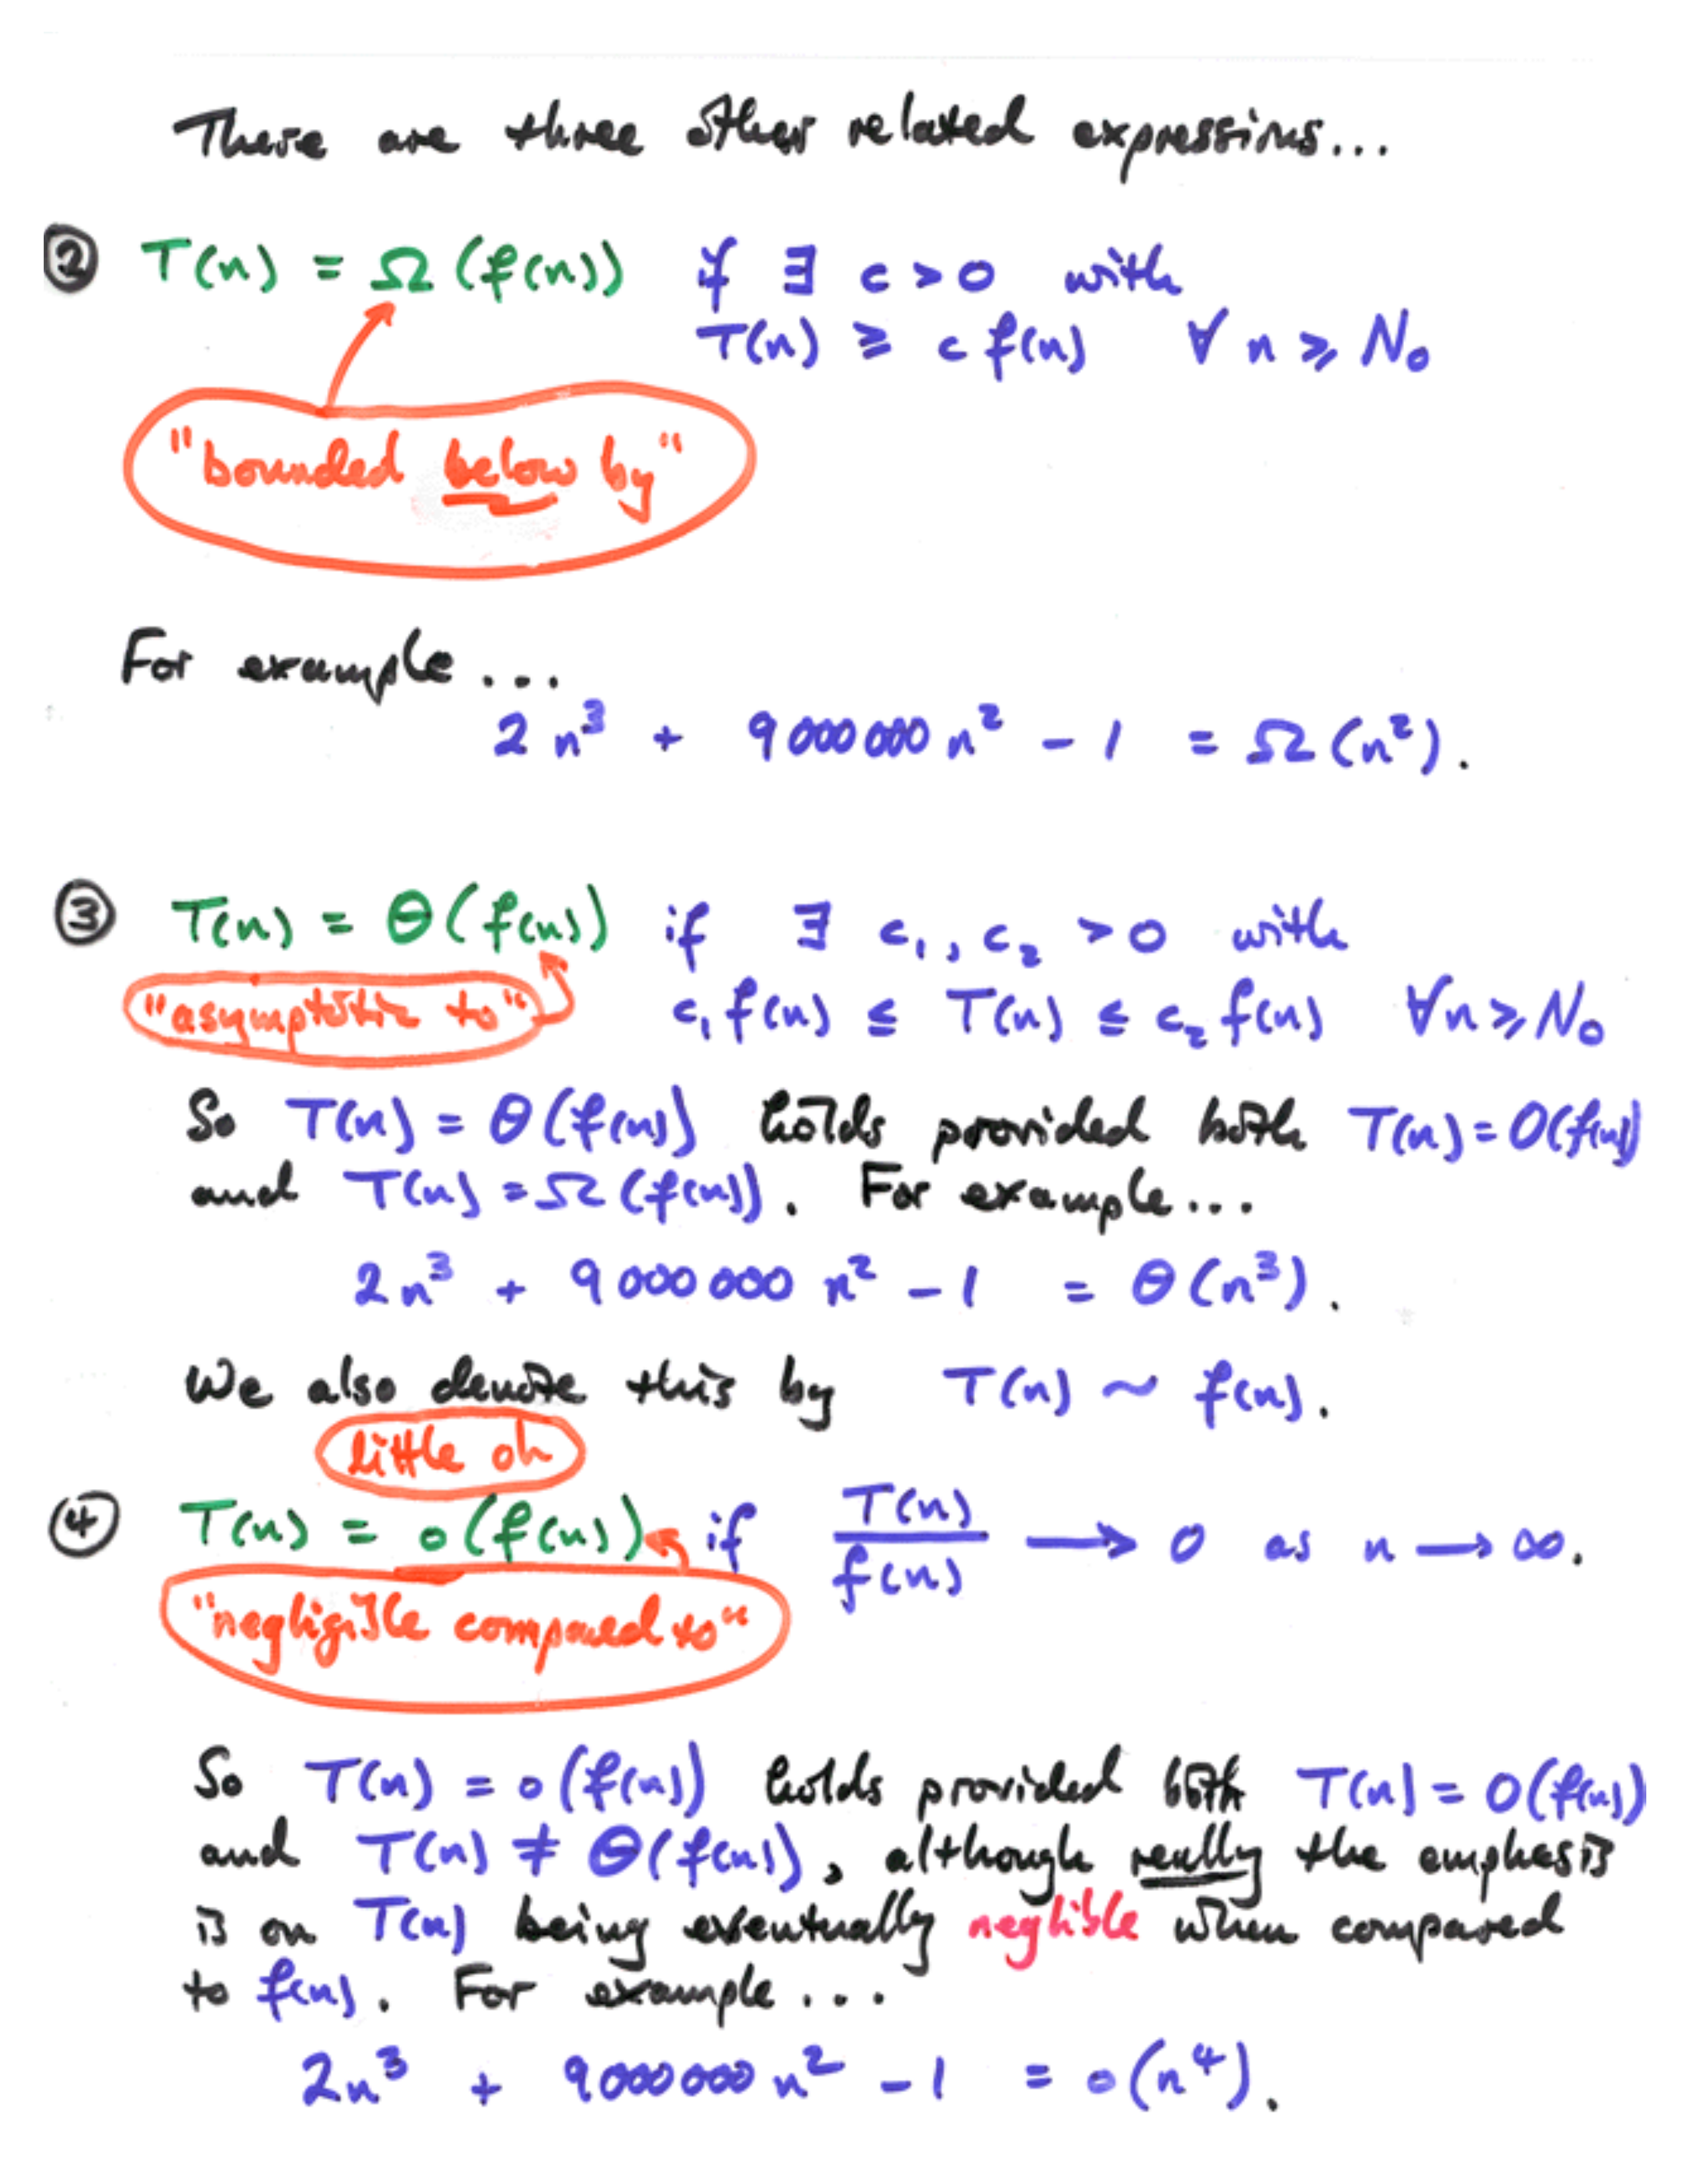 There are three other related expressions...
② T(n) = Ω(f(n)) if ∃ c > 0 with
T(n) ≥ c f(n) ∀ n ≥ N₀
"bounded below by"
For example...
2n³ + 9000000n² - 1 = Ω(n²).
③ T(n) = Θ(f(n)) if ∃ c₁, c₂ > 0 with
"asymptotic to" c₁f(n) ≤ T(n) ≤ c₂f(n) ∀n ≥ N₀
So T(n) = Θ(f(n)) holds provided both T(n) = O(f(n))
and T(n) = Ω(f(n)). For example...
2n³ + 9000000n² - 1 = Θ(n³).
We also denote this by T(n) ~ f(n).
little oh
④ T(n) = o(f(n)) if T(n)/f(n) ⟶ 0 as n ⟶ ∞.
"negligible compared to"
So T(n) = o(f(n)) holds provided both T(n) = O(f(n))
and T(n) ≠ Θ(f(n)), although really the emphasis
is on T(n) being eventually neglible when compared
to f(n). For example...
2n³ + 9000000n² - 1 = o(n⁴).